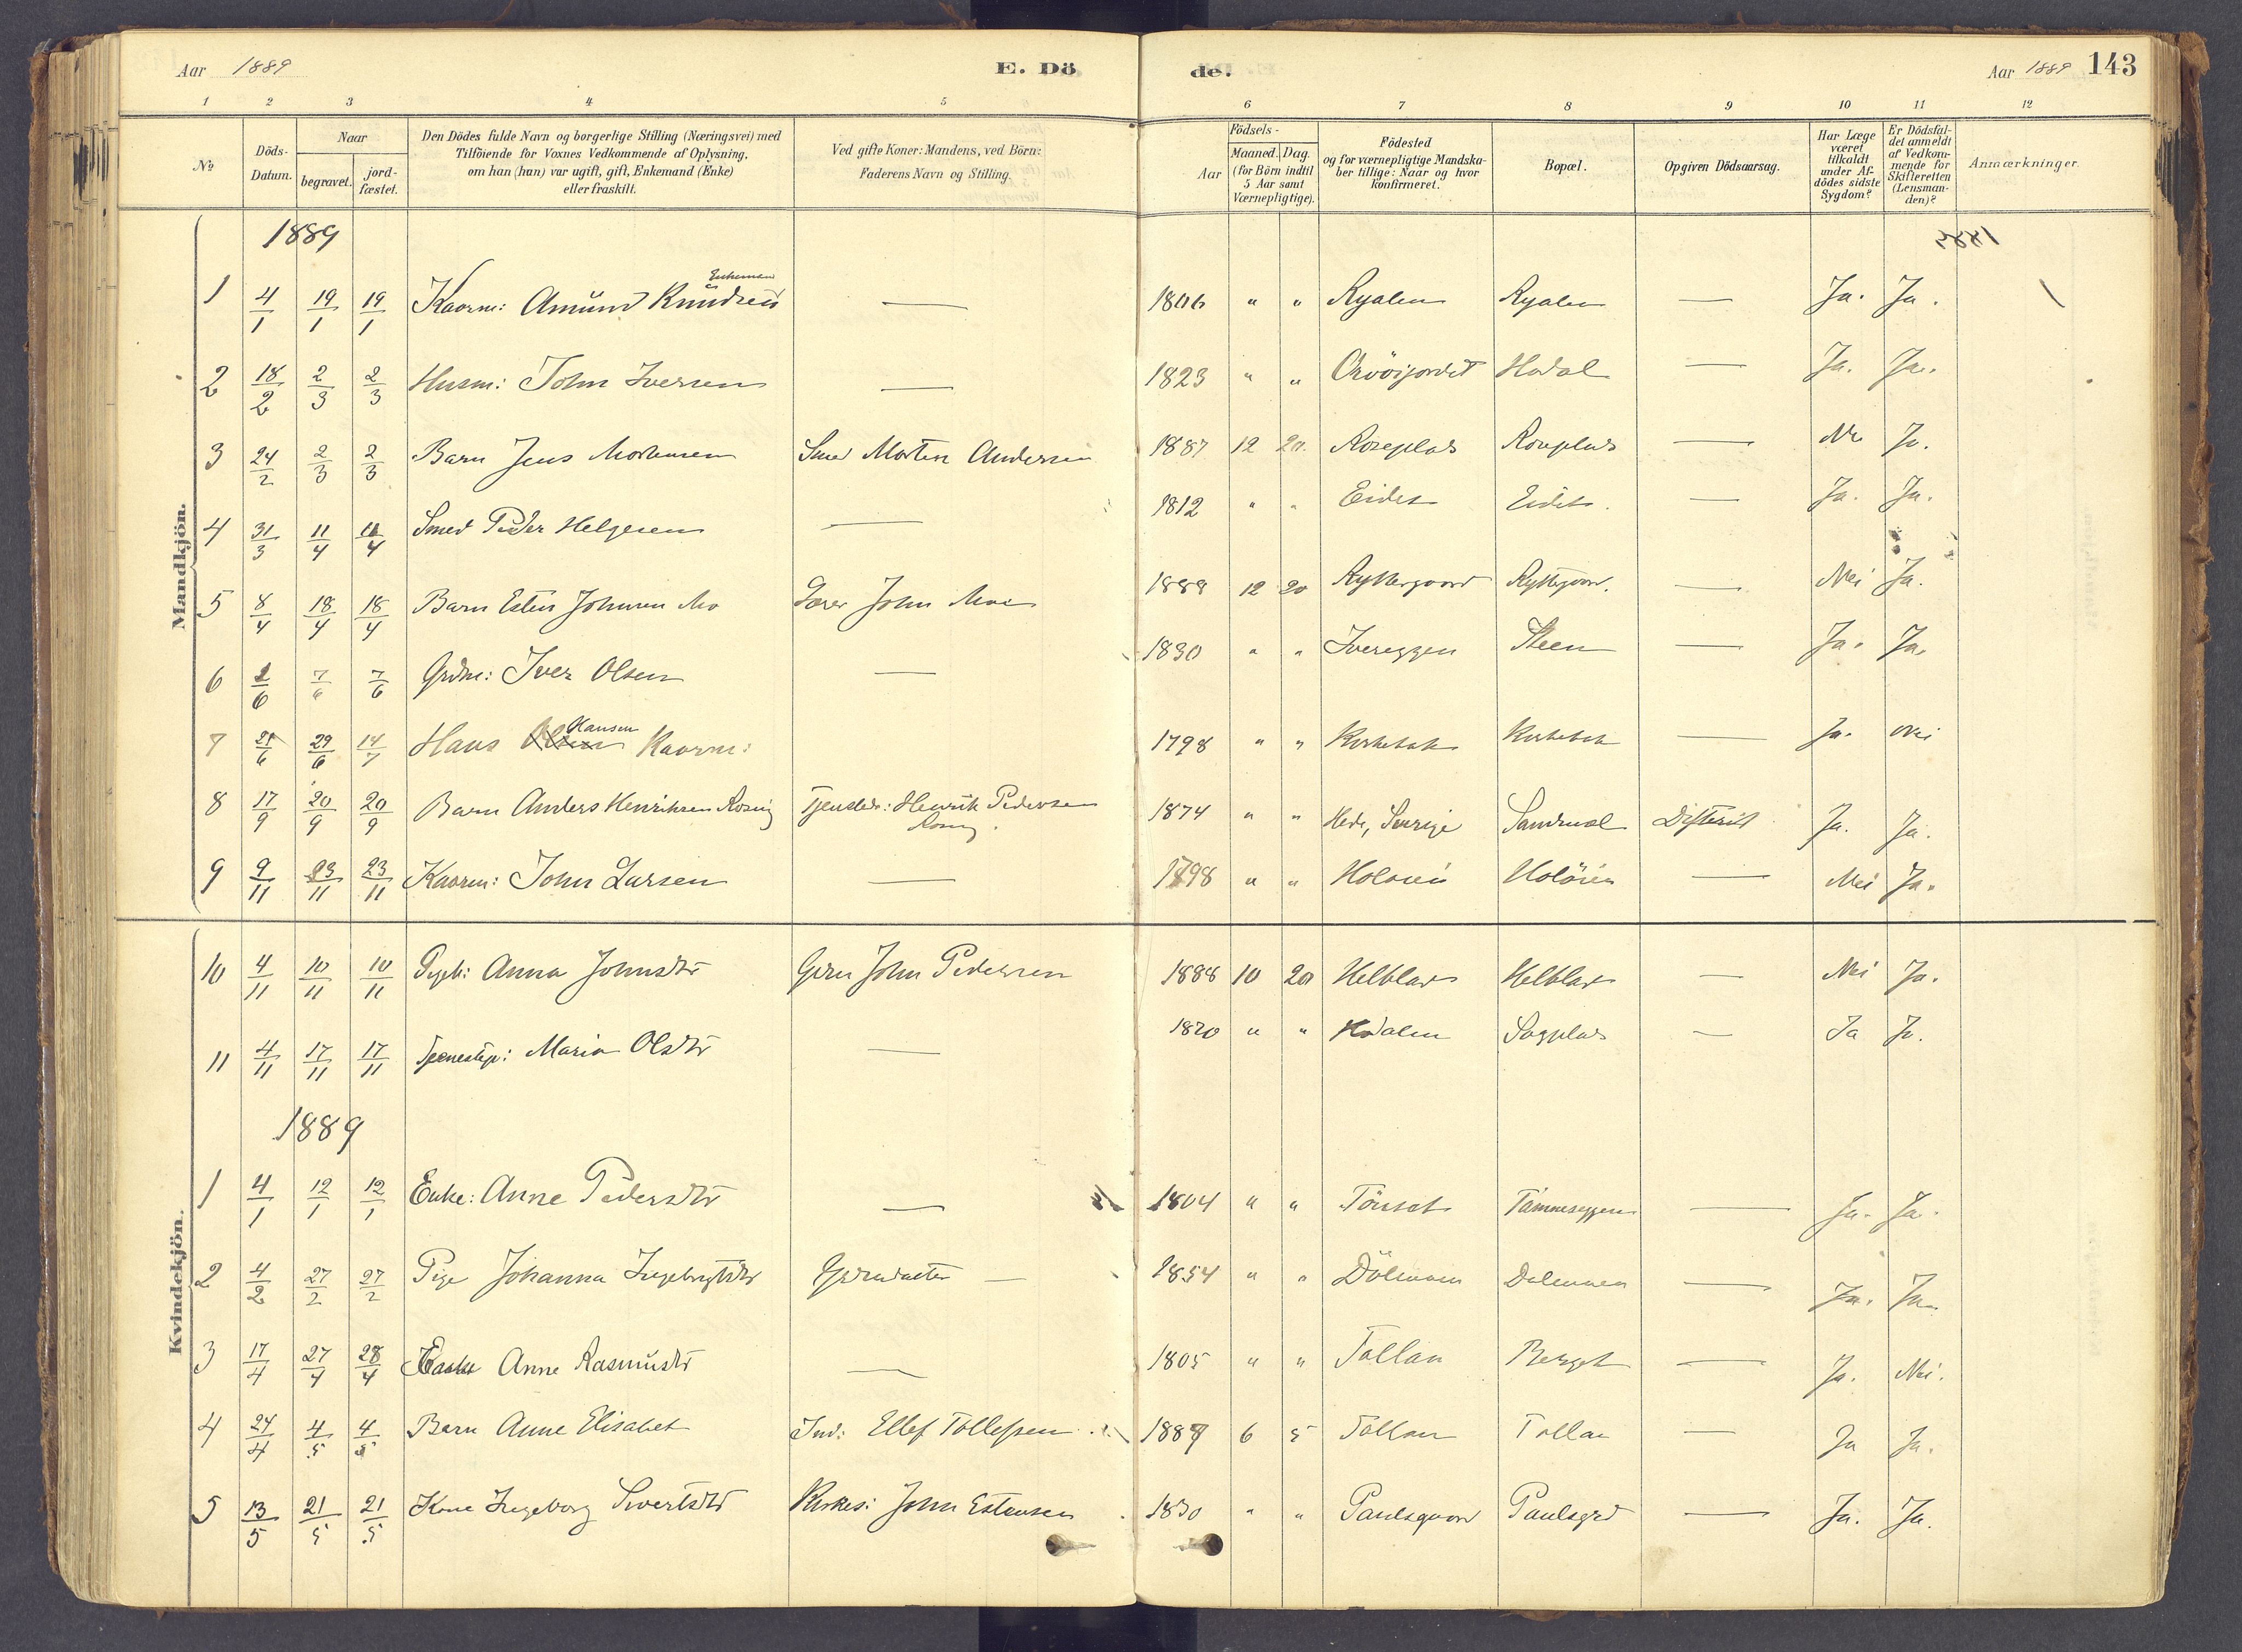 Aar 1889 E. Dö de. Aar 1889 143
1 2 3 4 5 6 7 8 9 10 11 12
№
Döds-Datum.
Naar
begravet. jordfæstet.
Den Dödes fulde Navn og borgerlige Stilling (Næringsvei) med
Tilföiende for Voxnes Vedkommende af Oplysning,
om han (hun) var ugift, gift, Enkemand (Enke)
eller fraskilt.
Ved gifte Koner: Mandens, ved Börn:
Faderens Navn og Stilling.
Födsels-
Aar Maaned. Dag.
(for Börn indtil
5 Aar samt
Værnepligtige).
Födested
og for værnepligtige Mandska-
ber tillige: Naar og hvor
konfirmeret.
Bopæl.
Opgiven Dödsaarsag.
Har Læge
været
tilkaldt
under Af-
dödes sidste
Sygdom?
Er Dödsfal-
det anmeldt
af Vedkom-
mende for
Skifteretten
(Lensman-
den)?
Anmærkninger.
Mandkjön.
1889
Enkemand
1 4/1 19/1 19/1 Kaarm: Amund Knudsen — 1806 " " Ryalen Ryalen — Ja. Ja.
2 18/2 2/3 2/3 Husm: John Iversen — 1823 " " Hodal — Ja. Ja.
3 24/2 2/3 2/3 Barn Jens Mortensen Smed Morten Andersen 1887 12 20. Roseplads Roseplads — Nei Ja.
4 31/3 11/4 11/4 Smed Peder Helgesen — 1812 " " Eidet Eidet. — Ja. Ja.
5 8/4 18/4 18/4 Barn Esten Johnsen Mo Lærer John Moe 1888 12 20 Ryttergaard Ryttegaard. — Nei Ja.
6 1/6 7/6 7/6 Grdm: Iver Olsen — 1830 " " Ivereggen Steen — Ja. Ja.
7 21/6 29/6 14/7 Hans Olsen Hansen Kaarm: 1798 " " Kirkebak Kirkebak — Ja. Nei
8 17/9 20/9 20/9 Barn Anders Henriksen Rosing Tjenstdr: Henrik Pedersen 1874 " " Hede, Sverige Sandmæl Difterit Ja. Ja.
Rosing.
9 9/11 23/11 23/11 Kaarm: John Larsen — 1798 " " Holöien Holöien — Nei Ja.
10 4/11 10/11 10/11 Pigeb: Anna Johnsdtr Grdm John Pedersen 1888 10 20 Helblad Helblad — Nei Ja.
11 4/11 17/11 17/11 Tjenestep: Maria Olsdtr — 1820 " " Hodalen Sagplads — Ja Ja.
Kvindekjön.
1889
1 4/1 12/1 12/1 Enke: Anne Pedersdtr — 1804 " " Tönset Tamneseggen — Ja. Ja.
2 4/2 27/2 27/2 Pige Johanna Ingebrigtsdtr Grdmdatter — 1854 " " Dölmoen Dolmoen — Ja. Ja.
3 17/4 27/4 28/4 Enke Anne Rasmusdtr — 1805 " " Tollan Berget — Ja. Nei.
4 24/4 4/5 4/5 Barn Anne Elisabet Ind: Ellef Tollefsen 1887 6 5 Tollan Tollan — Ja Ja.
5 13/5 21/5 21/5 Kone Ingeborg Sivertsdtr Kirkes: John Estensen 1830 " " Paulsgaard Paulsgrd — Ja. Ja.